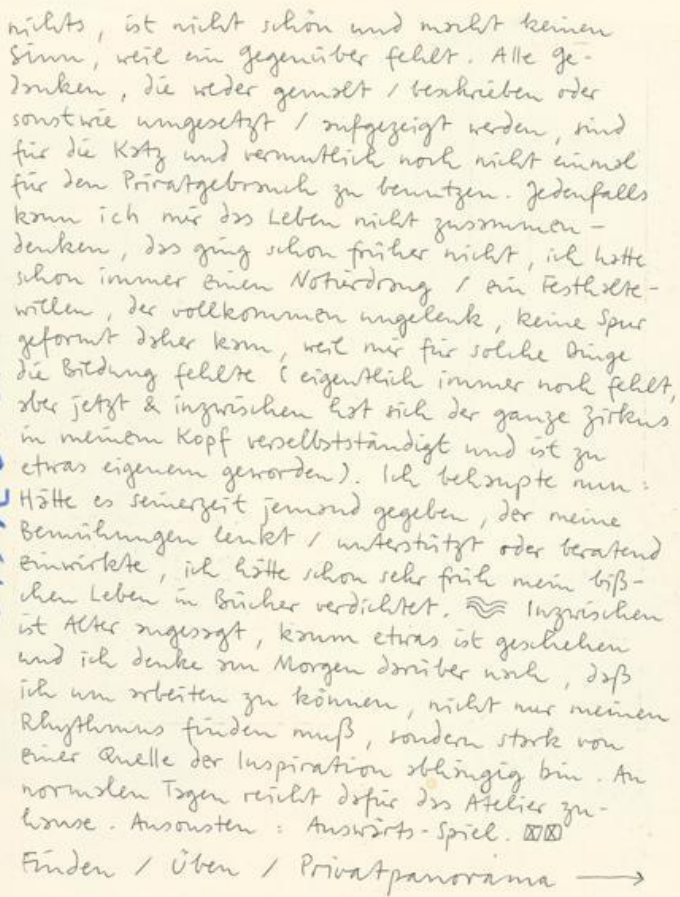 nichts, ist nicht schön und macht keinen
Sinn, weil ein Gegenüber fehlt. Alle Ge-
danken, die weder gemalt / beschrieben oder
sonstwie umgesetzt / aufgezeigt werden, sind
für die Katz und vermutlich noch nicht einmal
für den Privatgebrauch zu benutzen. Jedenfalls
kann ich mir das Leben nicht zusammen-
denken, das ging schon früher nicht, ich hatte
schon immer einen Notierdrang / ein Festhalte-
willen, der vollkommen ungelenk, keine Spur
geformt daher kam, weil mir für solche Dinge
die Bildung fehlte (eigentlich immer noch fehlt,
aber jetzt & inzwischen hat sich der ganze Zirkus
in meinem Kopf verselbstständigt und ist zu
etwas eigenem geworden). Ich behaupte nun:
Hätte es seinerzeit jemand gegeben, der meine
Bemühungen lenkt / unterstützt oder beratend
einwirkte, ich hätte schon sehr früh mein biß-
chen Leben in Bücher verdichtet. Inzwischen
ist Alter angesagt, kaum etwas ist geschehen
und ich denke am Morgen darüber nach, daß
ich um arbeiten zu können, nicht nur meinen
Rhythmus finden muß, sondern stark von
einer Quelle der Inspiration abhängig bin. An
normalen Tagen reicht dafür das Atelier zu-
hause. Ansonsten: Auswärts-Spiel.
Finden / Üben / Privatpanorama →